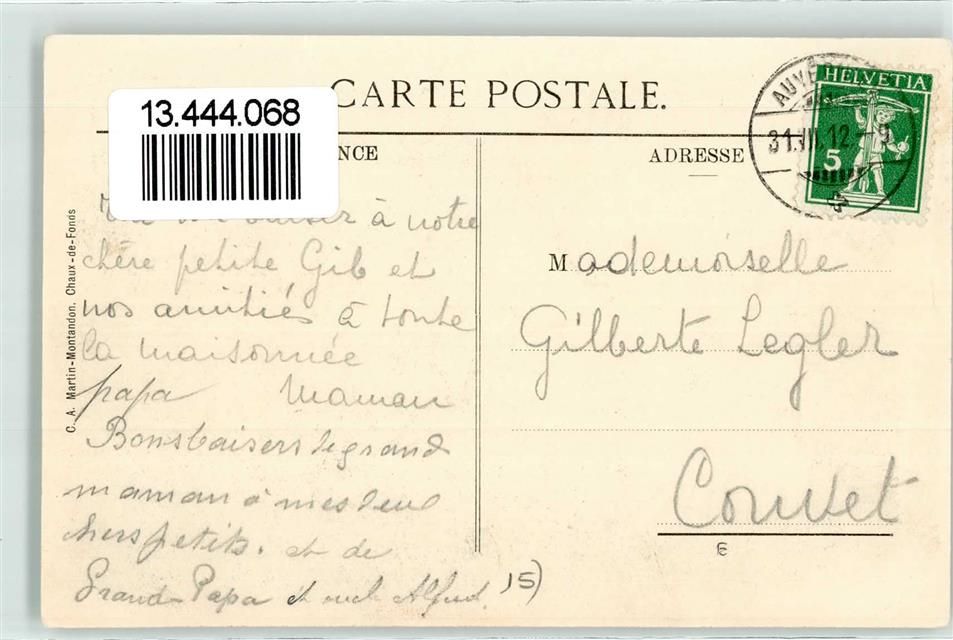 CARTE POSTALE.
13.444.068
NCE
ADRESSE
AUVER
31.VII.12.-9
HELVETIA
5
C. A. Martin-Montandon. Chaux-de-Fonds
baiser à notre
chère petite Gib et
nos amitiés à toute
la maisonnée
papa Maman
Bons baisers de grand
maman à mes deux
chers petits. et de
Grand-Papa et Alfred.
15)
Mademoiselle
Gilberte Legler
Couvet
E